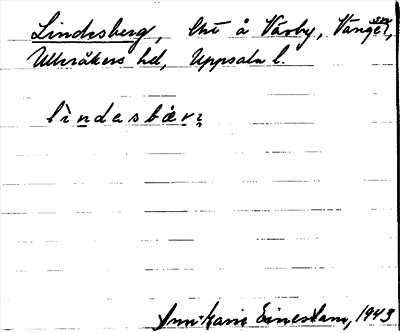 Lindesberg, lht å Våvby, Vänge sn,
Ulleråkers hd, Uppsala l.
lìndasbærj
Annikarin Einestam, 1943